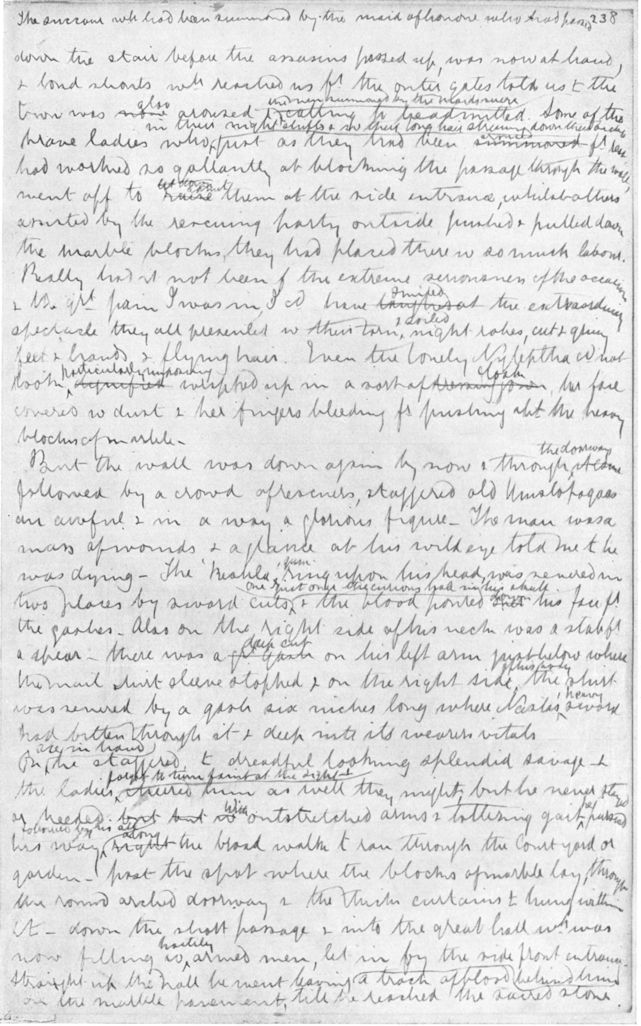 The succour wh had been summoned by the maid of honour who had passed 238
down the stair before the assassins passed up, was now at hand,
& loud shouts wh reached us fr the outer gates told us t the
town was now also aroused & the men summoned by the maids were calling to be admitted. Some of the
in their night shifts & w their long hair streaming down their backs
brave ladies who, just as they had been summoned aroused fr bed
had worked so gallantly at blocking the passage through the wall
went off to let admit them at the side entrance, whilst others
assisted by the rescuing party outside pushed & pulled down
the marble blocks they had placed there w so much labour.
Really had it not been f the extreme seriousness of the occasion
& the grt pain I was in, I cd have laughed at smiled the extraordinary
spectacle they all presented w their torn & soiled night robes, cut & grimy
feet & hands, & flying hair. Even the lovely Nyleptha did not
look dignified particularly imposing wrapped up in a sort of dressing gown cloak, her face
covered w dust & her fingers bleeding fr pushing abt the heavy
blocks of marble —
But the wall was down again by now & through the doorway, there
followed by a crowd of rescuers, staggered old Umslopogaas
an awful & in a way a glorious figure — The man was a
mass of wounds & a glance at his wild eye told me t he
was dying — The 'Keshla' gum ring upon his head was severed in
two places by sword cuts, one just over the curious hole in his skull & the blood poured down his face fr
the gashes — Also on the right side of his neck was a stab fr
a spear — there was a deep cut on his left arm just below where
the mail shirt sleeve stopped & on the right side of his body, the shirt
was severed by a gash six inches long where Nasta's heavy sword
had bitten through it & deep into its wearers vitals
On axe in hand he staggered, t dreadful looking splendid savage &
the ladies forgot to turn faint at the sight & cheered him as well they might, but he never stayed
or heeded. but With outstretched arms & tottering gait he pursued
followed by us all
his way, along the broad walk t ran through the court yard or
garden — past the spot where the blocks of marble lay, through
the round arched doorway & the thick curtains t hung within
it — down the short passage & into the great hall wh was
now filling w hastily armed men, let in by the side front entrance
Straight up the hall he went leaving a track of blood behind him
on the marble pavement, till he reached the sacred stone